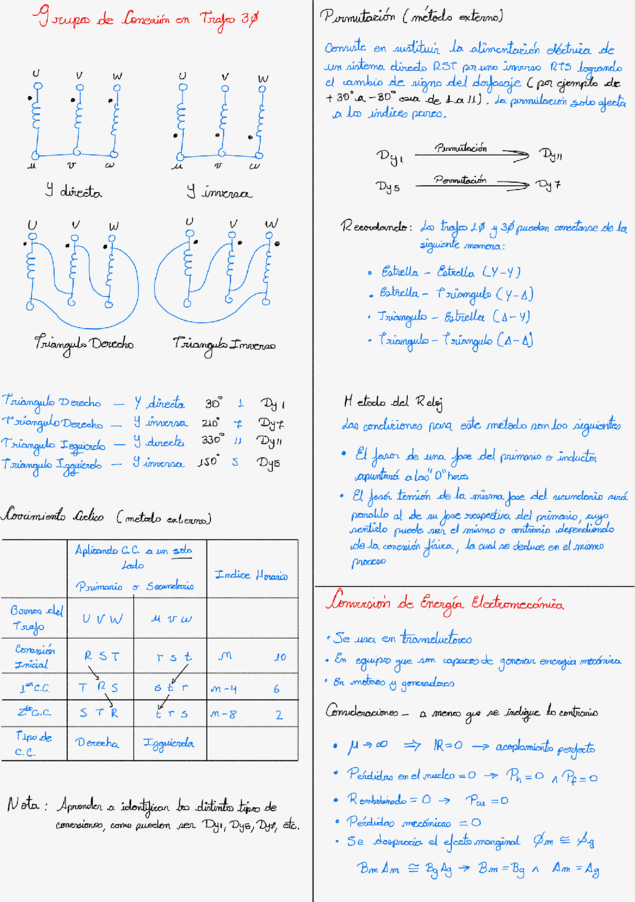 Grupos de Conexión en Trafo 3Ø
U V W U V W
u v w u v w
Y directa Y inversa
U V W U V W
Triangulo Derecho Triangulo Inverso
Triangulo Derecho — Y directa 30° 1 Dy1
Triangulo Derecho — Y inversa 210° 7 Dy7
Triangulo Izquierdo — Y directa 330° 11 Dy11
Triangulo Izquierdo — Y inversa 150° 5 Dy5
Corrimiento Ciclico (metodo externo)
Aplicando C.C. a un solo
lado
Primario o Secundario
Indice Horario
Bornes del
Trafo
U V W u v w
Conexión
Inicial
R S T r s t m 10
1er C.C. T R S s t r m-4 6
2do C.C. S T R t r s m-8 2
Tipo de
C.C.
Derecha Izquierda
Nota: Aprender a identificar los distintos tipos de
conexiones, como pueden ser Dy1, Dy5, Dy7, etc.
Permutación (método externo)
Consiste en sustituir la alimentación eléctrica de
un sistema directo RST por uno inverso RTS logrando
el cambio de signo del desfasaje (por ejemplo de
+30° a -30° osea de 1 a 11). La permutación solo afecta
a los indices pares.
Dy1 Permutación Dy11
Dy5 Permutación Dy7
Recordando: Los trafos 1Ø y 3Ø pueden conectarse de la
siguiente manera:
• Estrella - Estrella (Y-Y)
• Estrella - Triangulo (Y-Δ)
• Triangulo - Estrella (Δ-Y)
• Triangulo - Triangulo (Δ-Δ)
Metodo del Reloj
Las condiciones para este metodo son los siguientes
• El fasor de una fase del primario o inductor
apuntará a las "0" horas
• El fasor tensión de la misma fase del secundario será
paralelo al de su fase respectiva del primario, cuyo
sentido puede ser el mismo o contrario dependiendo
de la conexión física, la cual se deduce en el mismo
proceso
Conversión de Energía Electromecánica
• Se usa en transductores
• En equipos que son capaces de generar energia mecánica
• En motores y generadores
Consideraciones - a menos que se indique lo contrario
• μ → ∞ ⇒ IR = 0 → acoplamiento perfecto
• Pérdidas en el nucleo = 0 → Ph = 0 ∧ Pf = 0
• R embobinado = 0 → Pcu = 0
• Pérdidas mecánicas = 0
• Se desprecia el efecto marginal Øm ≅ Øg
Bm Am ≅ Bg Ag → Bm = Bg ∧ Am = Ag